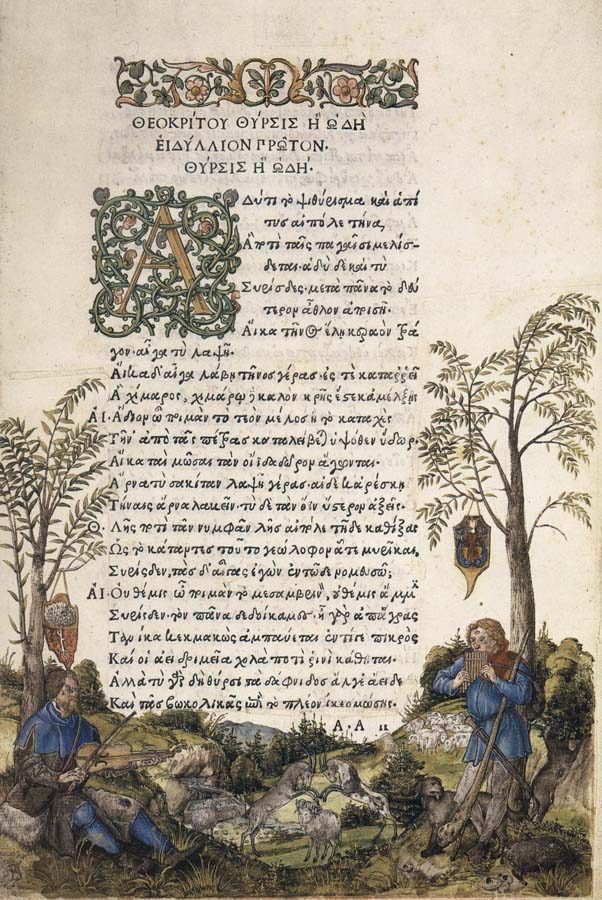 ΘΕΟΚΡΙΤΟΥ ΘΥΡΣΙΣ Ἢ ᾨΔῊ
ΕἸΔΥΛΛΙΟΝ ΠΡΩ͂ΤΟΝ.
ΘΎΡΣΙΣ Ἢ ᾨΔΉ.
Α ΔΎ τι τὸ ψιθύρισμα καὶ ἁ πί
τυς αἰπόλε τήνα,
Ἃ ποτὶ ταῖς παγαῖσι μελίσ-
δεται. ἁδὺ δὲ καὶ τὺ
Συρίσδες. μετὰ πᾶνα τὸ δεύ
τερον ἆθλον ἀποισῇ.
Αἴκα τῆνος ἕλῃ κεραὸν τρά
γον. αἶγα τὺ λαψῇ.
Αἴκα δ' αἶγα λάβῃ τῆνος γέρας ἐς τὲ καταρρεῖ
Ἁ χίμαρος, χιμάρω δὲ καλὸν κρῆς ἔστε κ' ἀμέλξῃς
ΑΙ. Ἅδιον ὦ ποιμὰν τὸ τεὸν μέλος ἢ τὸ καταχὲς
Τῆν' ἀπὸ τᾶς πέτρας καταλείβεται ὑψόθεν ὕδωρ.
Αἴκα ταὶ μῶσαι τὰν οἴιδα δῶρον ἄγωνται.
Ἄρνα τὺ σακίταν λαψῇ γέρας. αἰ δέ κ' ἀρέσκῃ
Τήναις ἄρνα λαβεῖν. τὺ δὲ τὰν ὄϊν ὕστερον ἀξεῖς.
Θ. Λῇς ποτὶ τᾶν νυμφᾶν λῇς αἰπόλε τῇδε καθίξας
Ὡς τὸ κάταντες τοῦτο γεώλοφον ἅτε μυρῖκαι,
Συρίσδεν, τὰς δ' αἶγας ἐγὼν ἐν τῷδε νομευσῶ;
ΑΙ. Οὐ θέμις ὦ ποιμὰν τὸ μεσαμβρινὸν, οὐ θέμις ἄμμιν
Συρίσδεν. τὸν πᾶνα δεδοίκαμες. ἦ γὰρ ἀπ' ἄγρας
Τανίκα κεκμακὼς ἀμπαύεται ἐντί γε πικρὸς
Καὶ οἱ ἀεὶ δριμεῖα χολὰ ποτὶ ῥινὶ κάθηται.
Ἀλλὰ τὺ γὰρ δὴ θύρσι τὰ δάφνιδος ἄλγε' ἄειδε
Καὶ τᾶς βωκολικᾶς ἐπὶ τὸ πλέον ἵκεο μώσης.
Α.Α ii